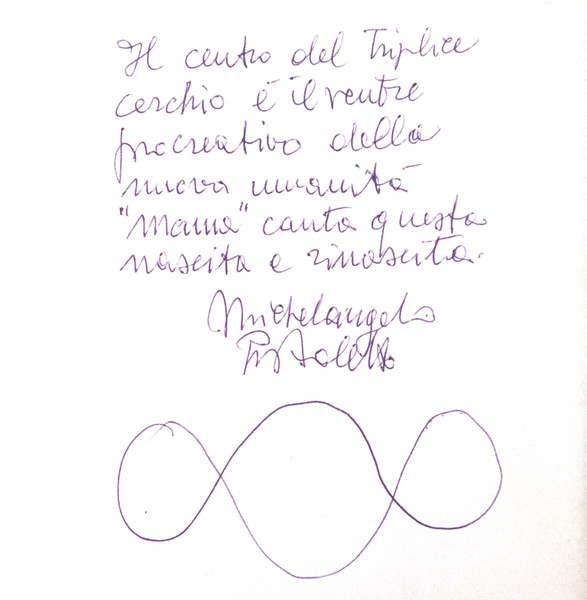 Il centro del Triplice
cerchio è il ventre
procreativo della
nuova umanità
"Mama" canta questa
nascita e rinascita.
Michelangelo
Pistoletto